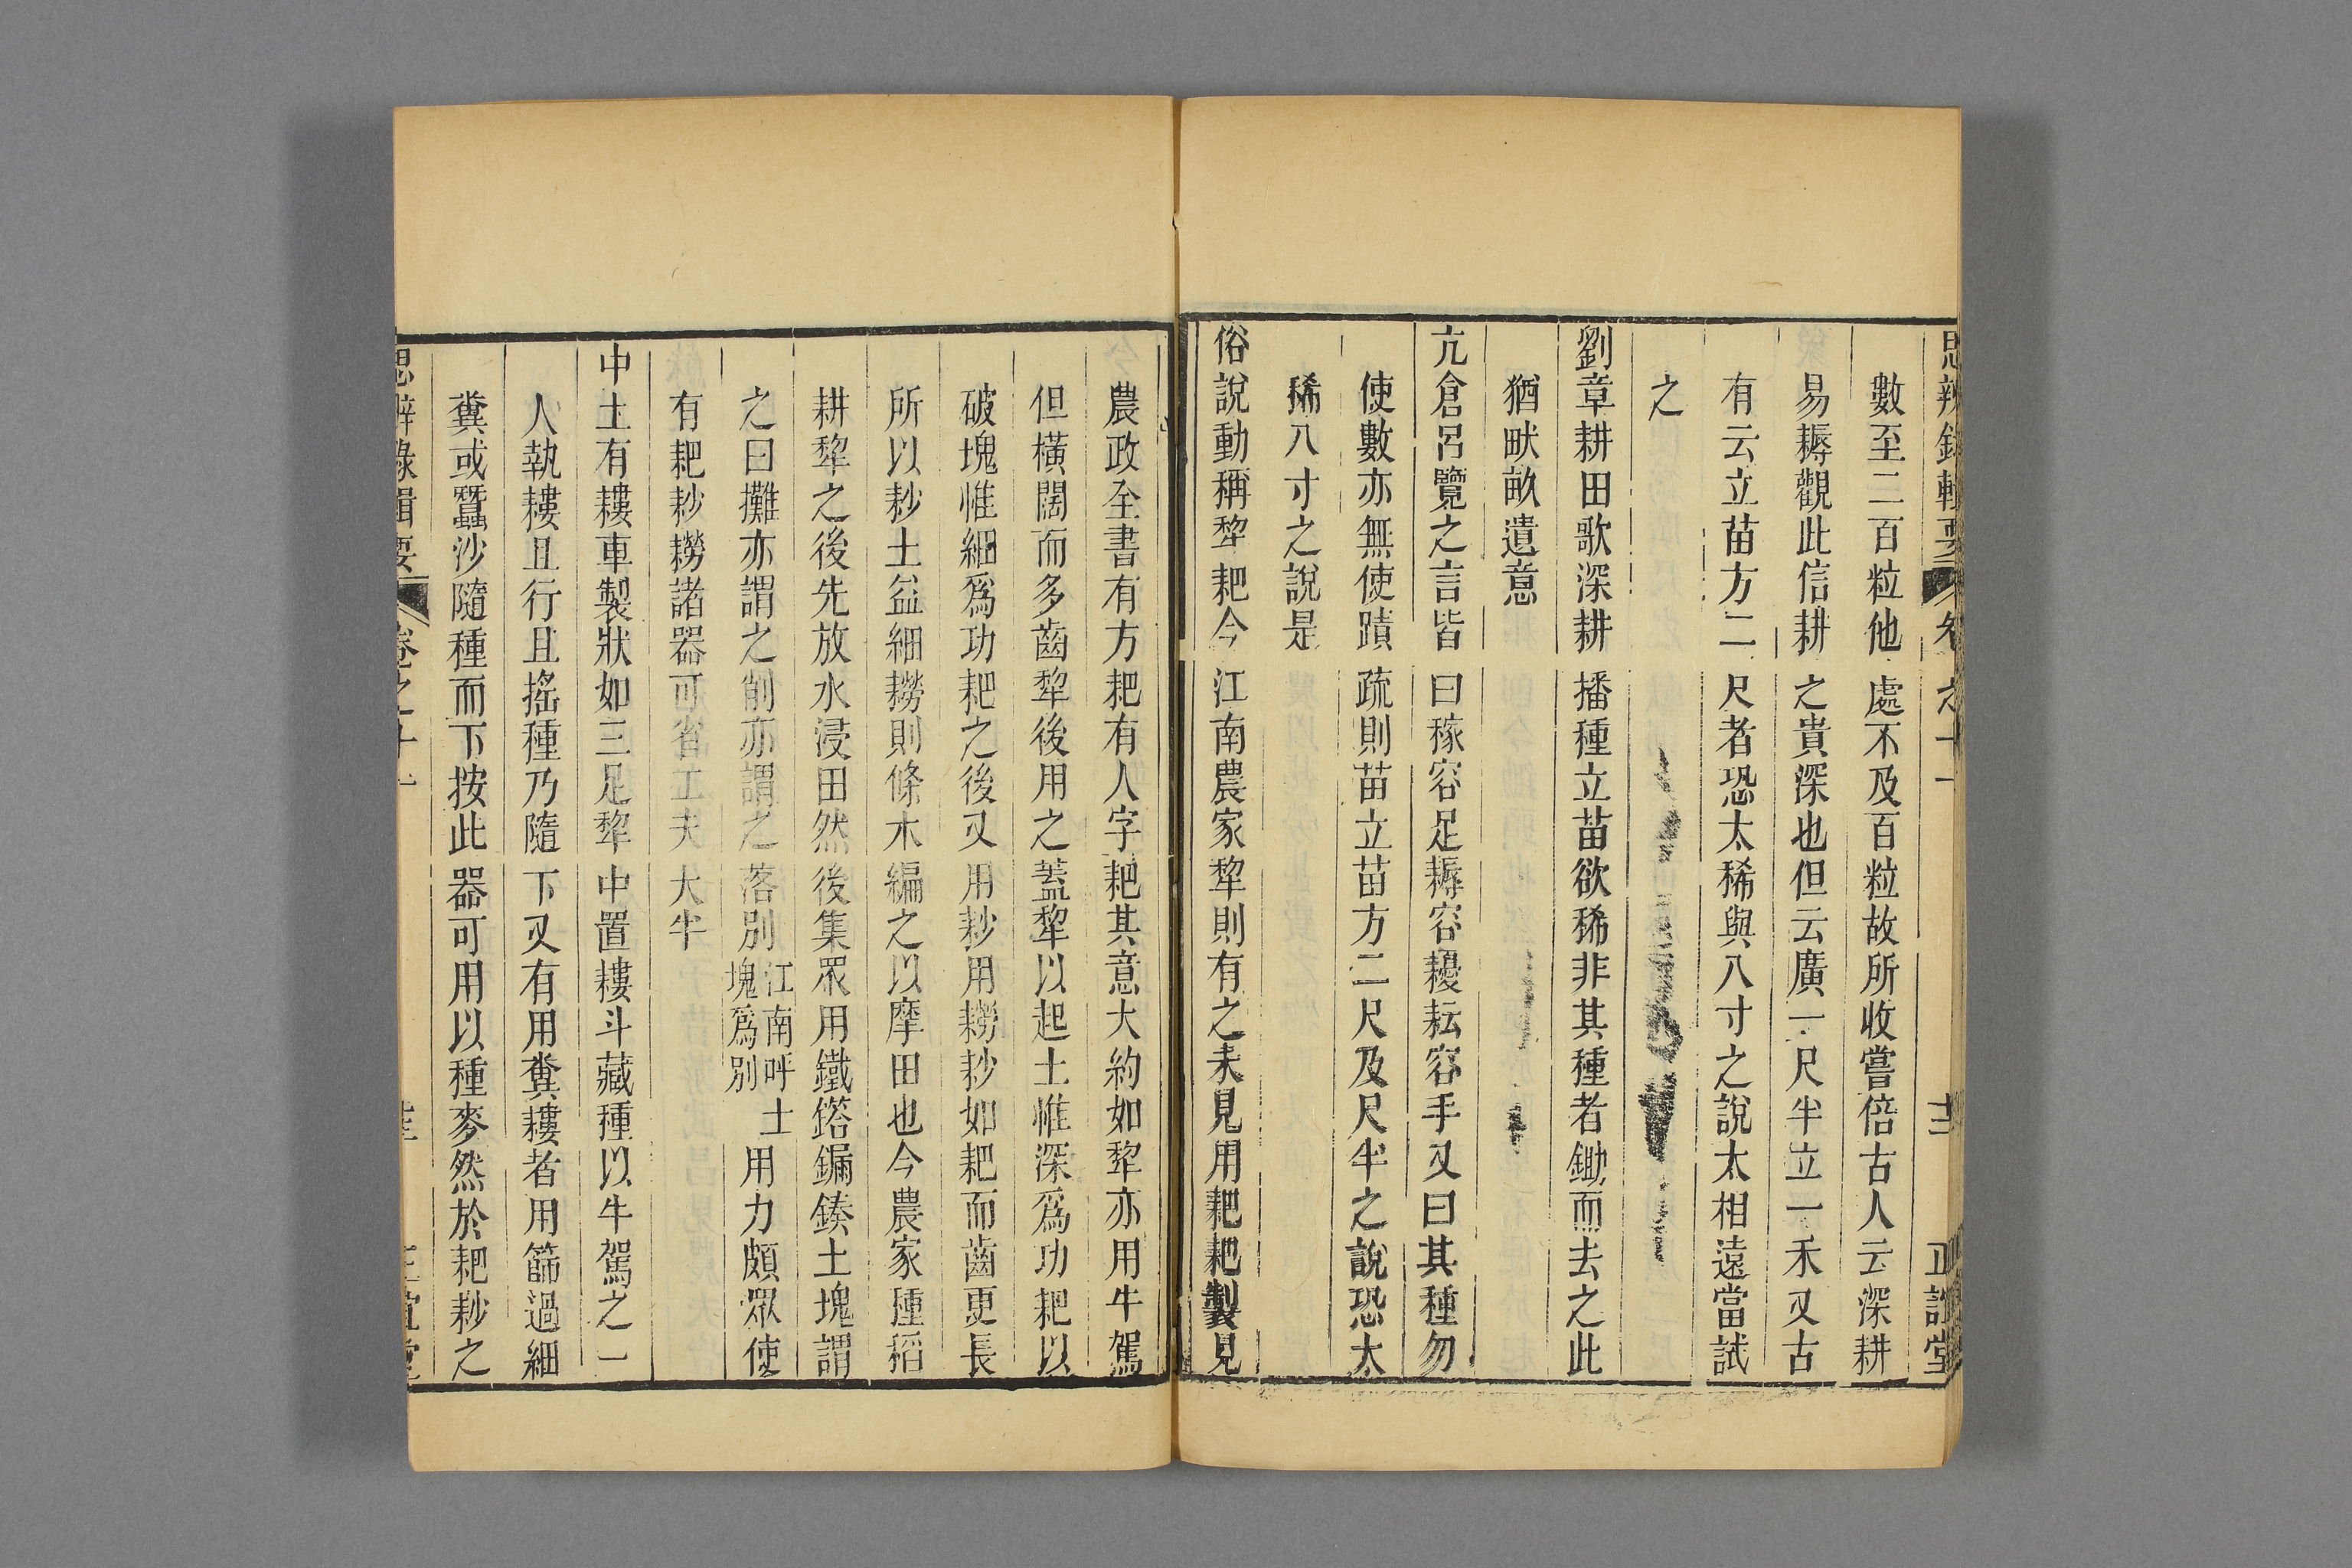 思辨錄輯要 卷之十一 十三 正誼堂
數至二百粒他處不及百粒故所收嘗倍古人云深耕
易耨觀此信耕之貴深也但云廣一尺半立一禾又古
有云立苗方二尺者恐太稀與八寸之說太相遠當試
之
劉章耕田歌深耕播種立苗欲稀非其種者鋤而去之此
猶畎畝遺意
亢倉呂覽之言皆曰稼容足耨容耰耘容手又曰其種勿
使數亦無使蹟疏則苗立苗方二尺及尺半之說恐太
稀八寸之說是
俗說動稱犂耙今江南農家犂則有之未見用耙耙製見
農政全書有方耙有人字耙其意大約如犂亦用牛駕
但橫闊而多齒犂後用之蓋犂以起土惟深爲功耙以
破塊惟細爲功耙之後又用耖用耮耖如耙而齒更長
所以耖土益細耮則條木編之以摩田也今農家種稻
耕犂之後先放水浸田然後集眾用鐵鎝鍽鍨土塊謂
之曰攤亦謂之削亦謂之落別江南呼土塊爲別用力頗眾使
有耙耖耮諸器可省工夫大半
中土有耬車製狀如三足犂中置耬斗藏種以牛駕之一
人執耬且行且搖種乃隨下又有用糞耬者用篩過細
糞或蠶沙隨種而下按此器可用以種麥然於耙耖之
思辨錄輯要 卷之十一 正誼堂